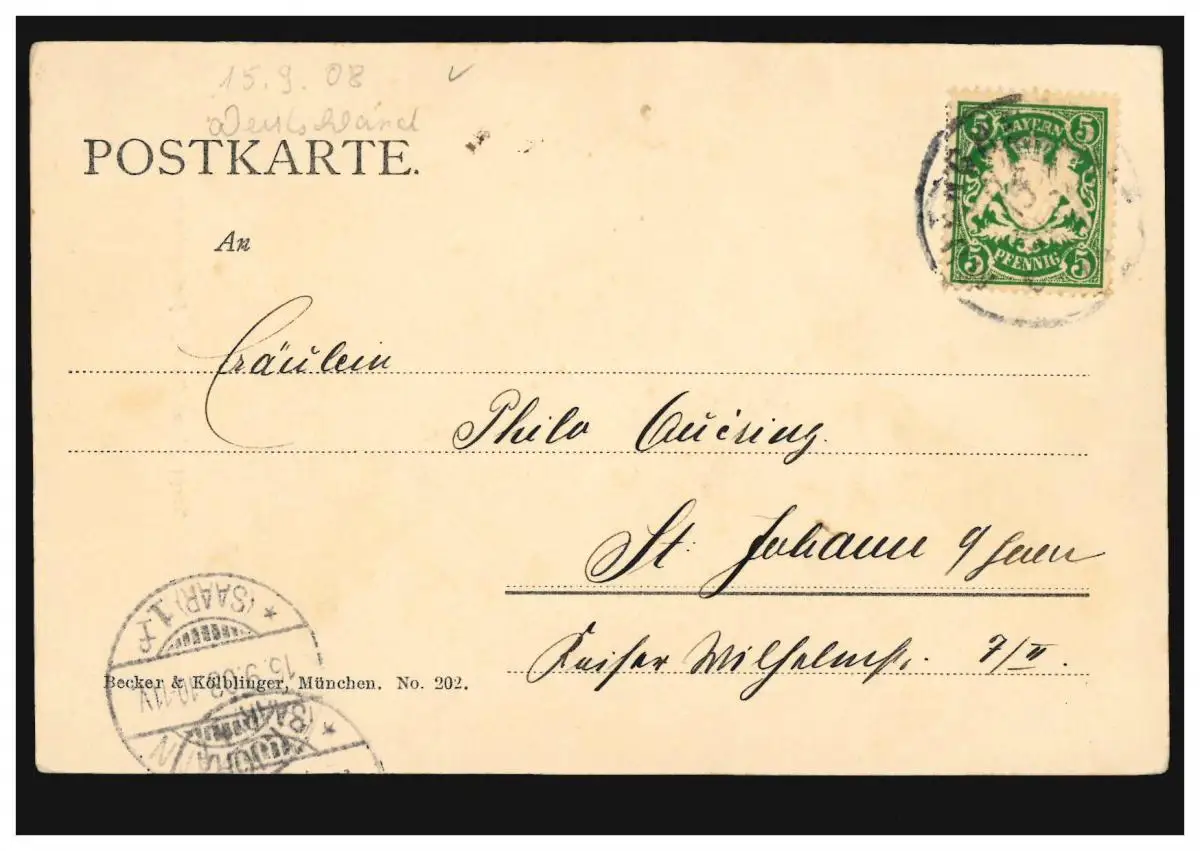 15.9.08
Deutschland
POSTKARTE.
5 BAYERN 5
5 PFENNIG 5
An
Fräulein
Philo
St. Johann a/Saar
Kaiser Wilhelmstr. 7/II.
(SAAR) 1 f
15.9.03.10-11V
Becker & Kölblinger, München. No. 202.
(SAAR)